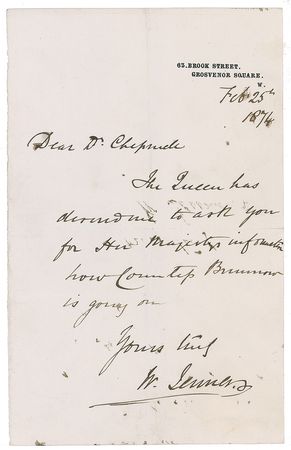 63. BROOK STREET.
GROSVENOR SQUARE.
W.
Feb 25th
1874
Dear Dr.
The Queen has
to ask you
for Her Majesty's information
how Countess Brunnow
is going on
Yours truly
W. Jenner